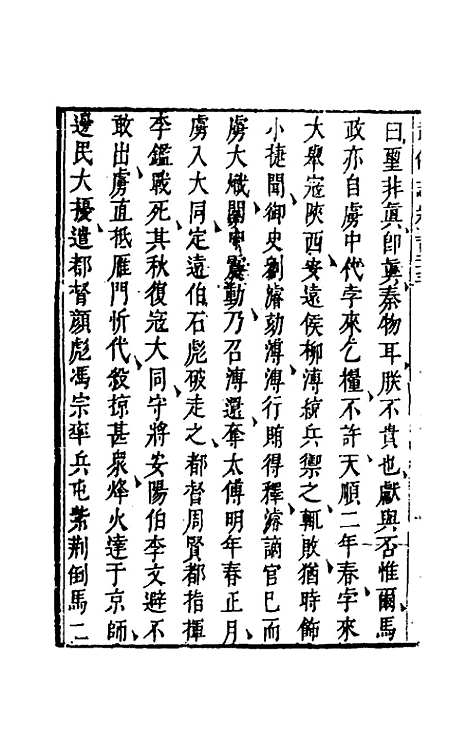 曰璽非眞卽眞秦物耳朕不貴也獻與否惟爾馬
政亦自虜中代孛來乞糧不許天順二年春孛來
大舉寇陜西安遠侯柳溥統兵禦之輒敗猶時飾
小捷聞御史劉濬劾溥溥行賄得釋濬謫官巳而
虜大熾關中震動乃召溥還奪太傅明年春正月
虜入大同定遠伯石彪破走之都督周賢都指揮
李鑑戰死其秋復寇大同守將安陽伯李文避不
敢出虜直抵雁門忻代殺掠甚衆烽火達于京師
邊民大擾遣都督顔彪馮宗率兵屯紫荆倒馬二